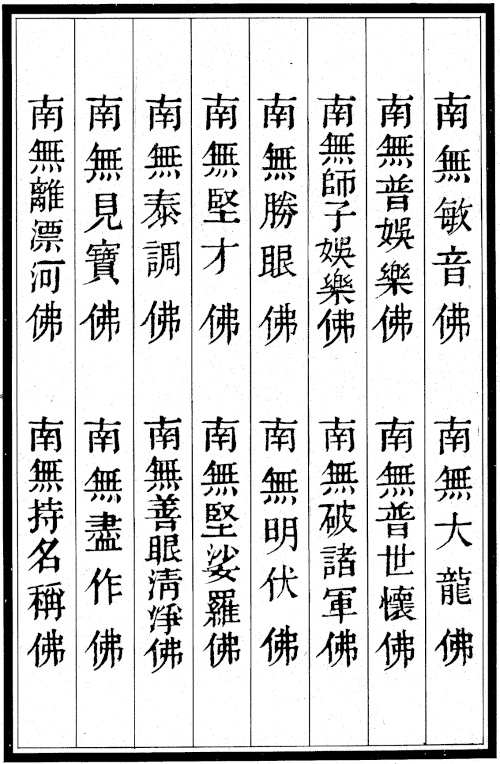 南無敏音佛 南無大龍佛
南無普娛樂佛 南無普世懷佛
南無師子娛樂佛 南無破諸軍佛
南無勝眼佛 南無明伏佛
南無堅才佛 南無堅娑羅佛
南無泰調佛 南無善眼清淨佛
南無見寶佛 南無盡作佛
南無離漂河佛 南無持名稱佛